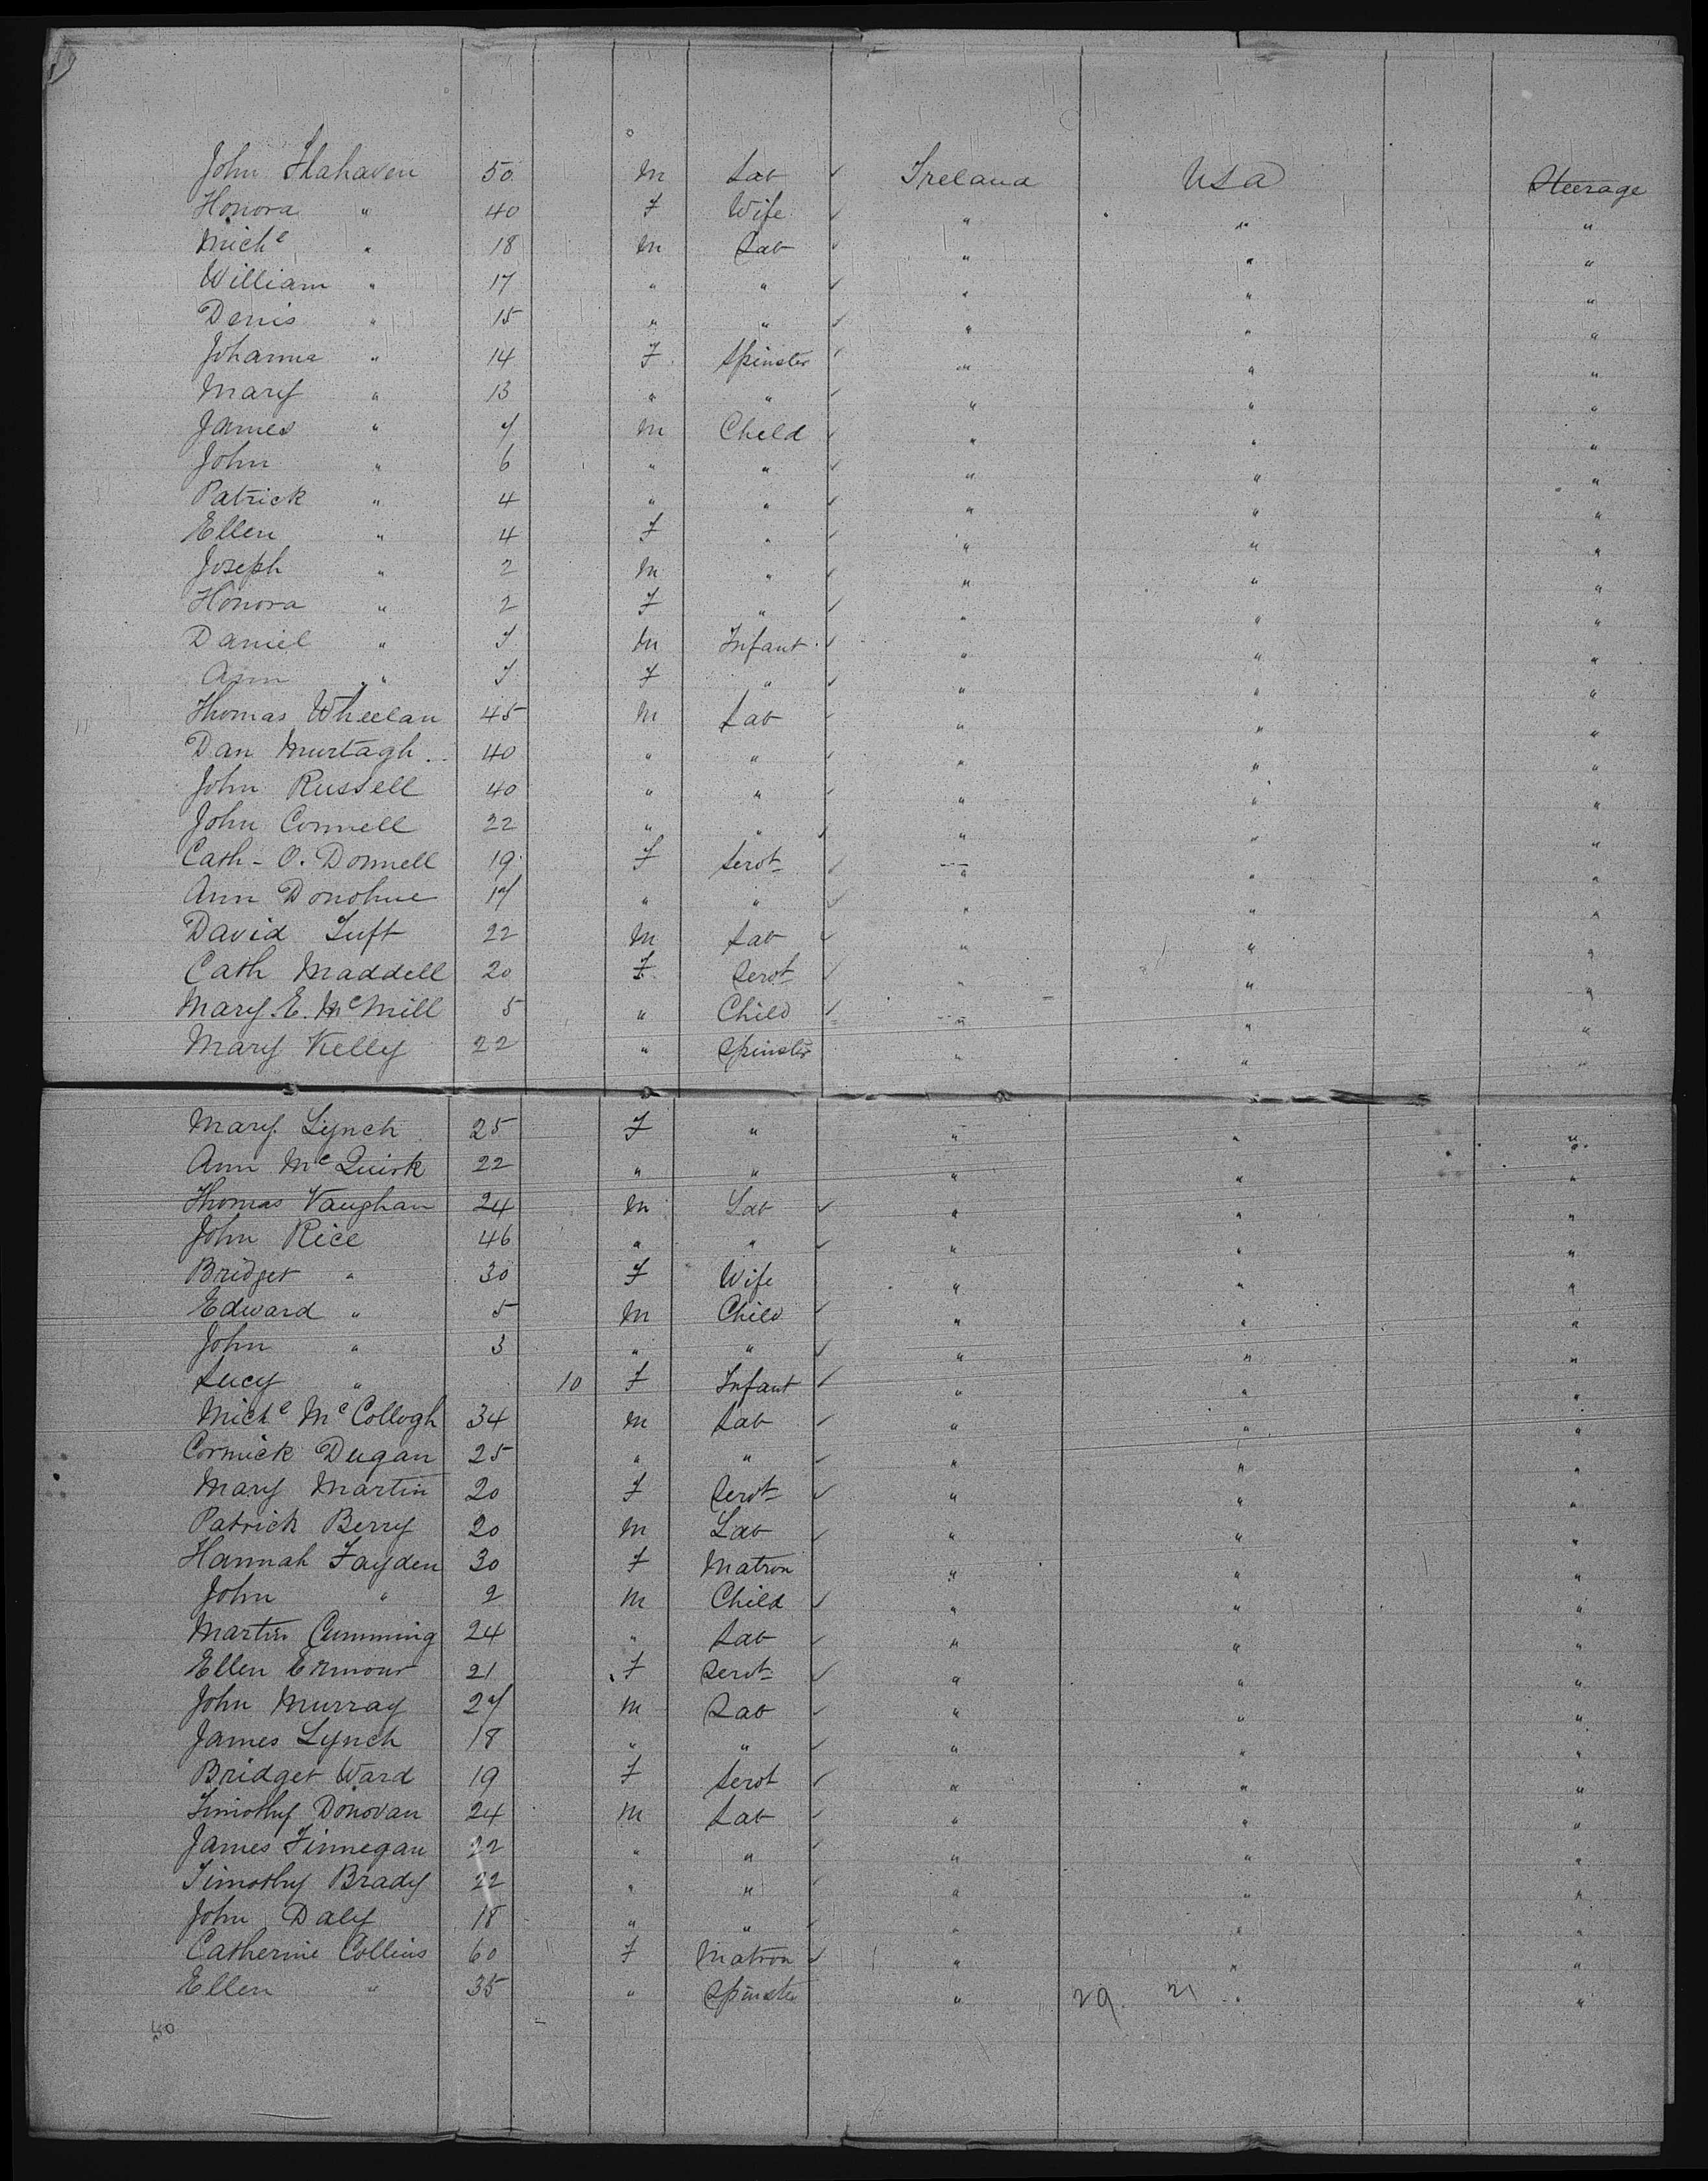 John Flahaven 50 M Lab ✓ Ireland USA Steerage
Honora " 40 F Wife ✓ " " "
Mich<sup>l</sup> " 18 M Lab ✓ " " "
William " 17 " " ✓ " " "
Denis " 15 " " ✓ " " "
Johanna " 14 F Spinster ✓ " " "
Mary " 13 " " ✓ " " "
James " 7 M Child ✓ " " "
John " 6 " " ✓ " " "
Patrick " 4 " " ✓ " " "
Ellen " 4 F " ✓ " " "
Joseph " 2 M " ✓ " " "
Honora " 2 F " ✓ " " "
Daniel " M Infant ✓ " " "
Ann " F " ✓ " " "
Thomas Wheelan 45 M Lab ✓ " " "
Dan Murtagh 40 " " ✓ " " "
John Russell 40 " " ✓ " " "
John Connell 22 " " ✓ " " "
Cath- O. Donnell 19 F Servt ✓ " " "
Ann Donohue 17 " " ✓ " " "
David Tuft 22 M Lab ✓ " " "
Cath Maddell 20 F Servt ✓ " " "
Mary. E. McMill 5 " Child ✓ " " "
Mary Kelly 22 " Spinster " " "
Mary Lynch 25 F " " " "
Ann McQuirk 22 " " " " "
Thomas Vaughan 24 M Lab ✓ " " "
John Rice 46 " " ✓ " " "
Bridget " 30 F Wife " " "
Edward " 5 M Child ✓ " " "
John " 3 " " ✓ " " "
Lucy " 10 F Infant ✓ " " "
Mich<sup>l</sup> McCollogh 34 M Lab ✓ " " "
Cormick Dugan 25 " " ✓ " " "
Mary Martin 20 F Servt ✓ " " "
Patrick Berry 20 M Lab ✓ " " "
Hannah Fayden 30 F Matron " " "
John " 2 M Child ✓ " " "
Martin Cumming 24 " Lab ✓ " " "
Ellen 21 F Servt ✓ " " "
John Murray 27 M Lab ✓ " " "
James Lynch 18 " " ✓ " " "
Bridget Ward 19 F Servt ✓ " " "
Timothy Donovan 24 M Lab ✓ " " "
James Finnegan 22 " " ✓ " " "
Timothy Brady 22 " " ✓ " " "
John Daly 18 " " ✓ " " "
Catherine Collins 60 F Matron ✓ " " "
Ellen " 35 " Spinster " 29 21 " "
50